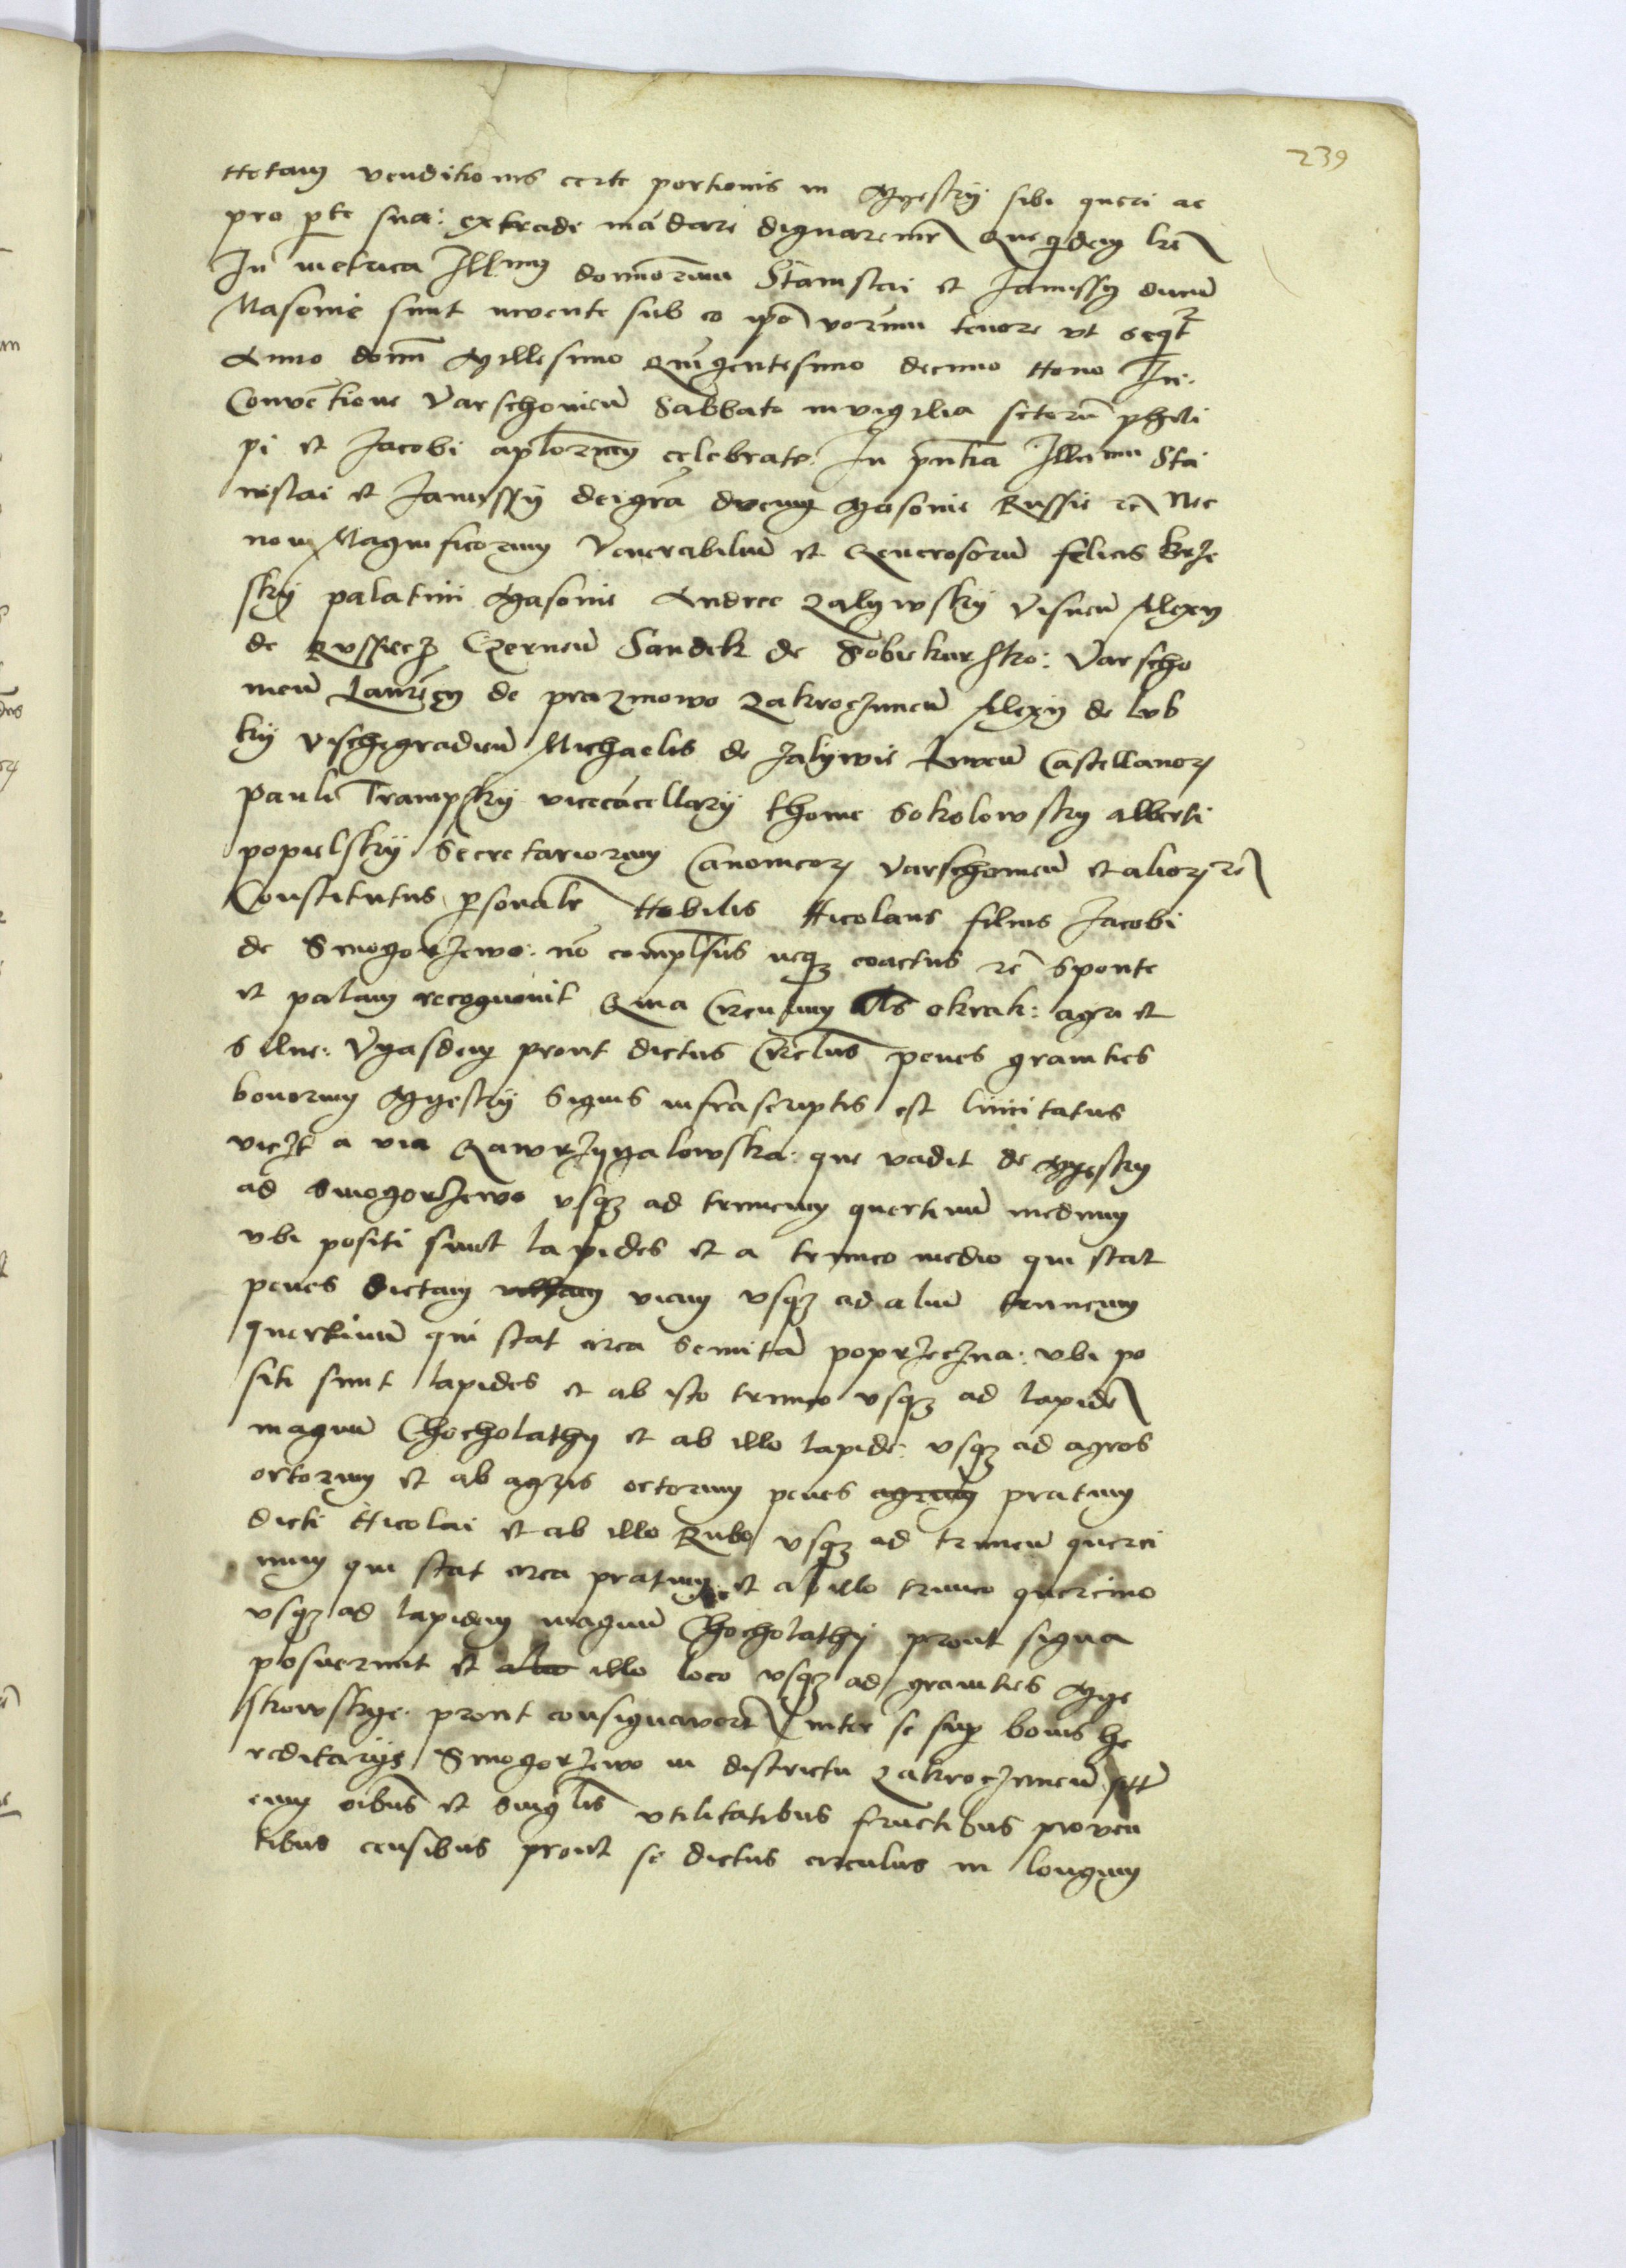 239
Notam venditionis certe portionis in Myestky sibi queri ac
pro pte sua: extrade mādare dignaremr Que qdem lre
In metrica Illmm dominorum Stanislai et Janussy ducū
Masovie sunt invente sub eo ipo verūm tenore vt seqr
Anno domī Millesimo Quīgentesimo decimo Nono In
Convētione Varschoviēn Sabbato in vigilia sctorū phili
pi et Jacobi aplorum celebrate. In pntia Illmm Sta
nislai et Janussy dei grā ducum Masovie Russie rc Nec
non Magnificorum Venerabiliū et Generosorū felicis brze
sky palatini Masovie Andree Zalywsky Visnen Alexy
de Russiecz Czernen Sandek de Sobiekursko: Varscho
vien Laurēcy de prazmowo Zakroczimen Alexy de lub
ky vischegradien Michaelis de Zalywie Liwen Castellanor
Pauli Trampsky vicecācellary thome Sokolowsky alberti
popielsky Secretariorum Canonicor varschovien et alior rc
Constitutus psonalr Nobilis Nicolaus filius Jacobi
de Smogorzewo: nō complsus neqz coactus rc sponte
et palam recognovit Quia Circulum als okrak: agri et
silue: Vyasdem prout dictus Crclus penes granities
bonorum Myestky signis infrascriptis est limitatus
viczt a via Gawrzyyalowska: que vadit de Myestky
ad Smogorzewo vsqz ad truncum quertinū medium
vbi positi sunt lapides et a trunco medio qui stat
penes dictam viam vsqz ad aliū truncum
quertinū qui stat circa semitā poprzeczna: vbi po
siti sunt lapides et ab isto trunco vsqz ad lapidē
magnū Chocholathy et ab illo lapide vsqz ad agros
ortorum et ab agris ortorum penes agrum pratum
dicti Nicolai et ab illo Rubo vsqz ad truncū querci
num qui stat circa pratum et ab illo trunco quercino
vsqz ad lapidem magnū Chocholathy prout signa
posuerunt et illo loco vsqz ad granities Mye
stkowskye prout consignaverūt inter se sup bonis he
reditarys Smogorzewo in districtu Zakroczimen sitt
cum oibus et singlis vtilitatibus fructibus proven
tibus censibus prout se dictus circulus in longum